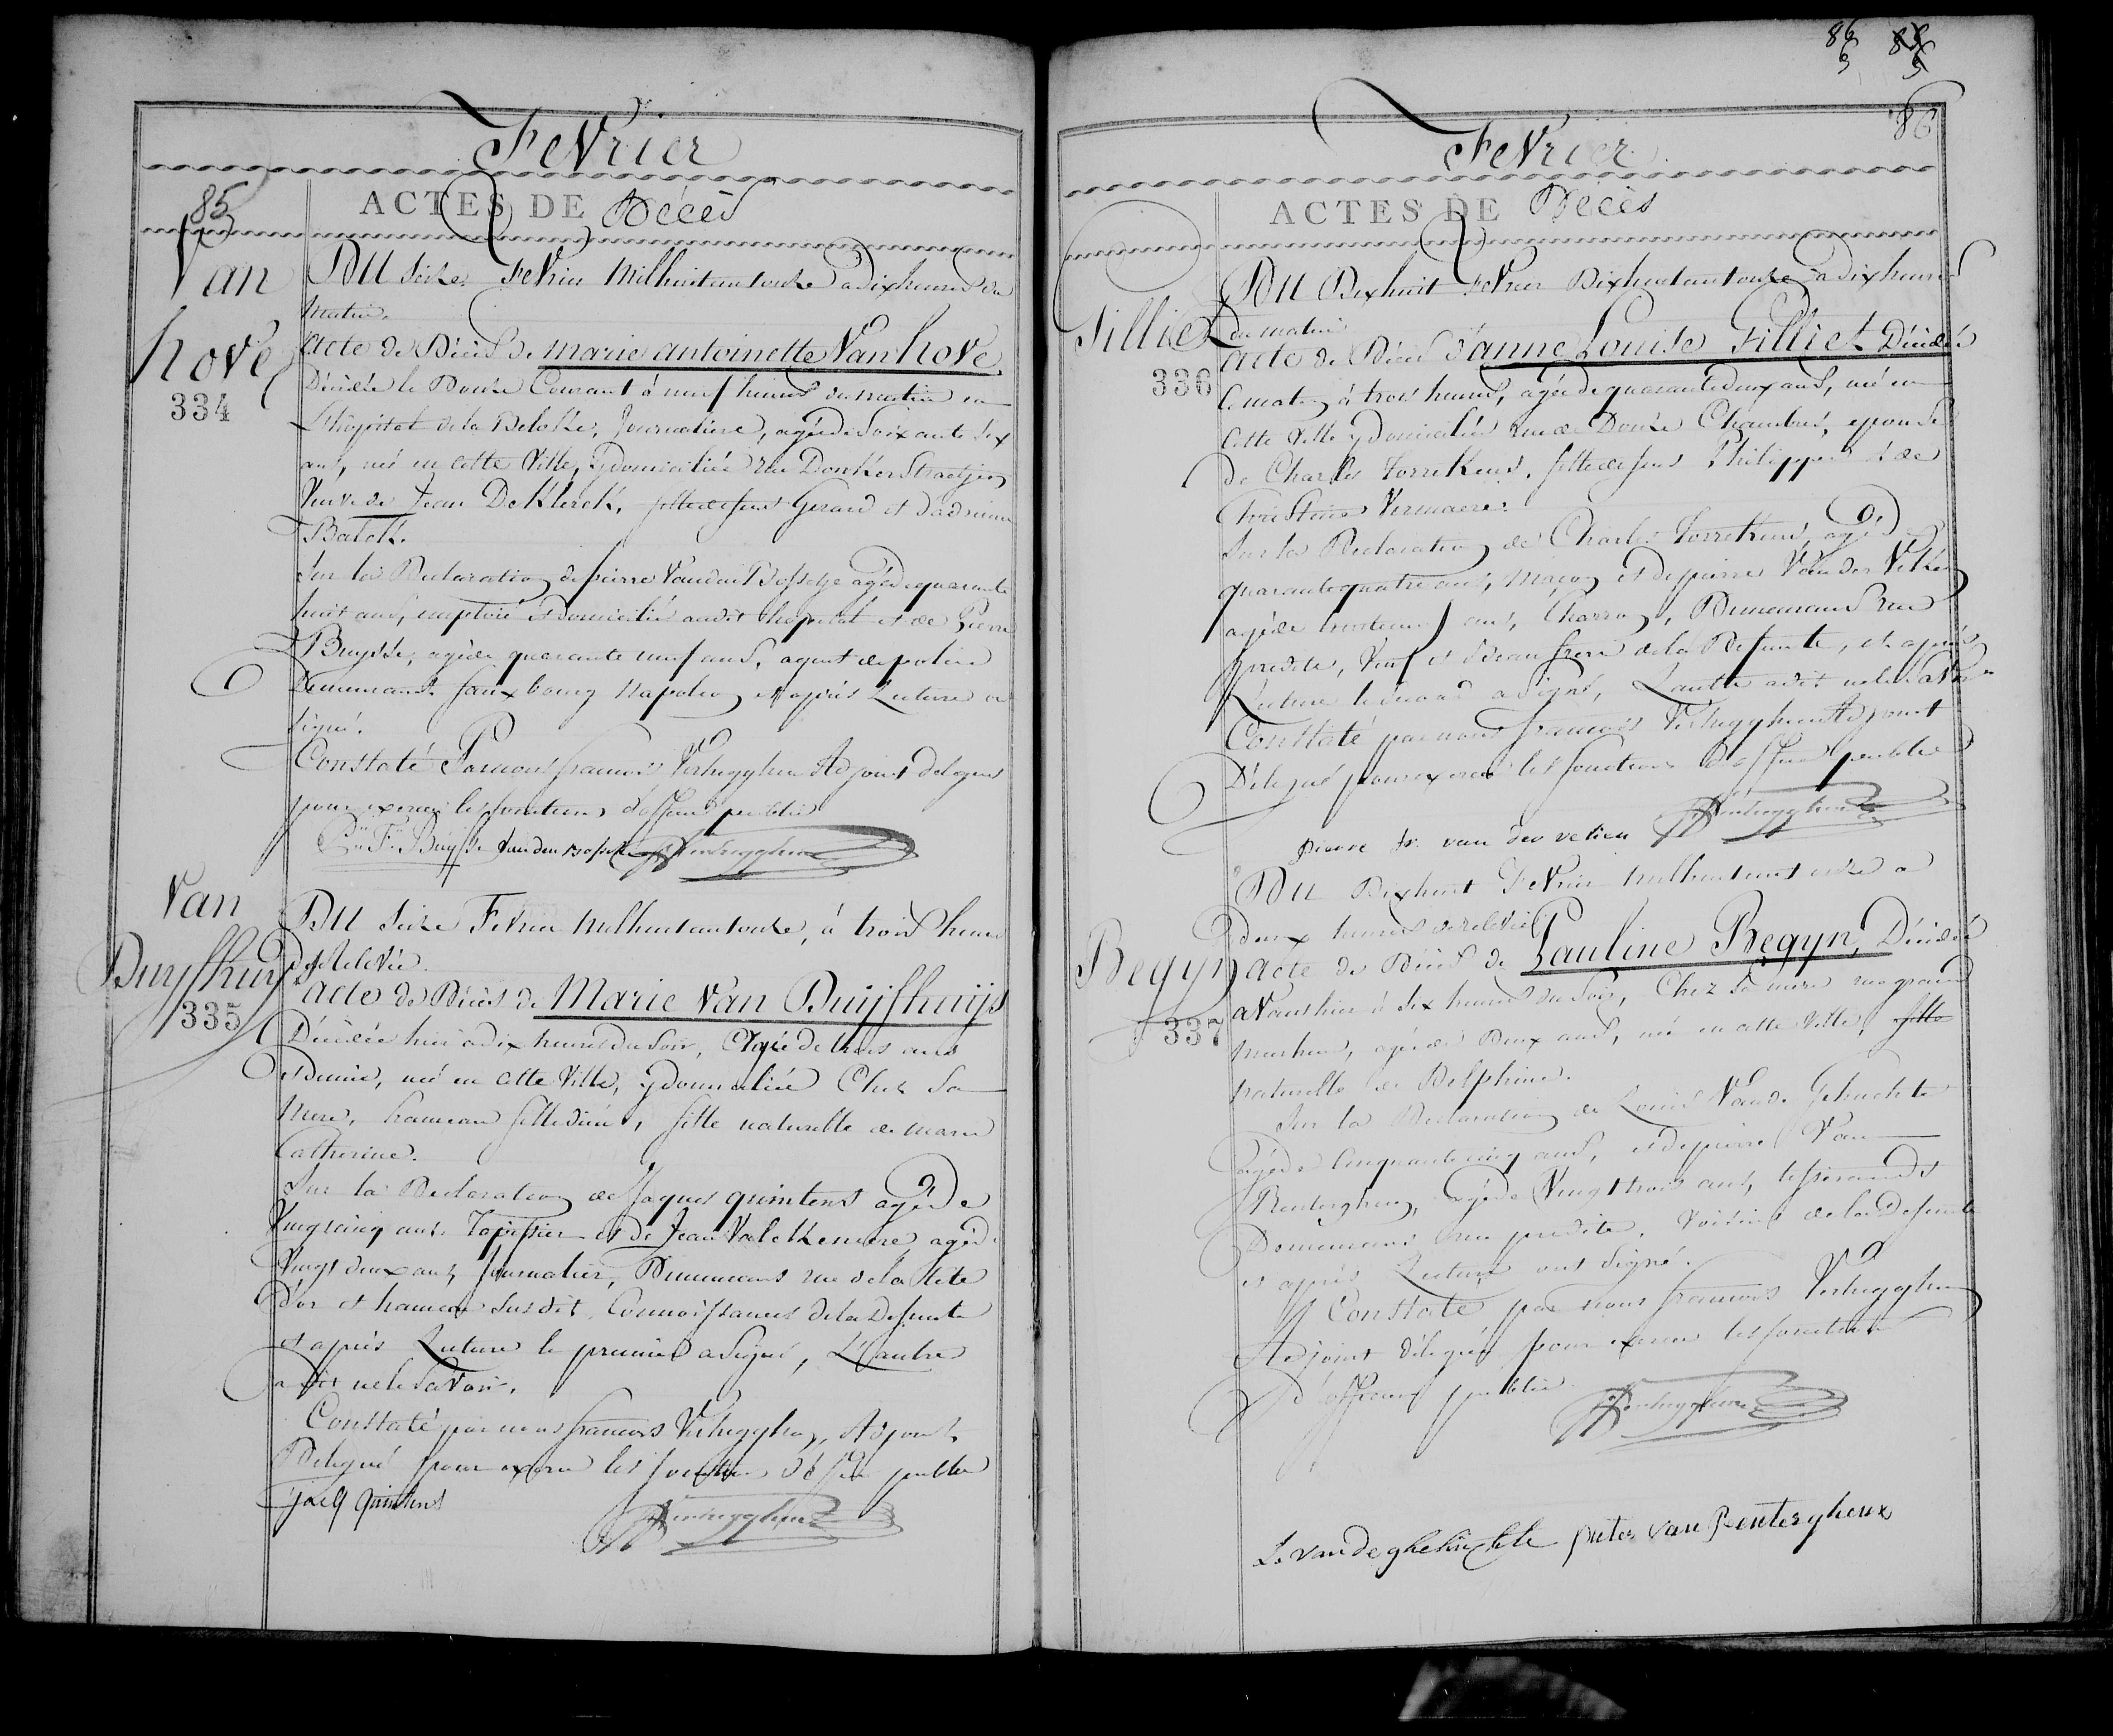 Fevrier
85
ACTES DE Décès
Van
hove
334
DU Seize Fevrier Milhuitcentonze a dix heures du
Matin.
Acte de Décès de marie antoinette Van hove,
Décédée le Douze Courant à neuf heures du matin en
L'hopital de la Beloke, Journaliere, agée de Soixante Six
ans, née en cette Ville, y domiciliée rue Donker Straetjen
Veuve de Jean De Klerck, fille de feus Gerard et d'adrienne
Balck.
Sur la Declaration de pierre Vanden Bossche agé de quarante
huit ans, emploié et Domicilié audit hopital et de Pierre
Buysse, agé de quarante neuf ans, agent de police
Demeurant fauxbourg Napoleon et après Lecture ont
signé.
Constaté Par nous francois Verhegghen Adjoint delegué
pour exercer les fonctions d'officier public
Buysse Vanden Bossche Verhegghen
Van
Duysshuys
335
DU Seize Fevrier Milhuitcentonze, à trois heures
de Relevée.
Acte de Décès de Marie Van Duijshuijs
Décédée hier a dix heures du Soir, Agée de trois ans
et Demie, née en cette Ville, y domiciliée Chez Sa
Mere, hameau , fille naturelle de Marie
Catherine.
Sur la Declaration de Jaques quintens agé de
Vingtcinq ans, Tapissier et de Jean Valckeneere agé de
Vingt deux ans, Journalier, Demeurans rue de la tete
D'or et hameau Susdit, Connoissances de la Defunte
et après Lecture le premier a Signé, L'autre
a dit ne le Savoir.
Constaté par nous francois Verhegghen, Adjoint
Delegué pour exercer les fonctions d'officier public
jacq quintens Verhegghen
86 86
86
Fevrier
ACTES DE Décès
Filliet
336
DU Dixhuit Fevrier Dixhuitcentonze a dix heures
du matin
Acte de Décès d'anne Louise Filliet Décédée
ce matin à trois heures, agée de quarante deux ans, née en
Cette Ville y domiciliée rue de Douze Chambres, epouse
de Charles Torrekens, fille de feus Philippe et de
Christine Vermaere.
Sur la Declaration de Charles Torrekens, agé de
quarante quatre ans, Maçon et de pierre Van der Veken
agé de trente neuf ans, Charron, Demeurans rue
predite, Veuf et Beau frere de la Defunte, et après
Lecture le second a signé, L'autre a dit ne le Savoir
Constaté par nous francois Verhegghen Adjoint
Délegué pour exercer les fonctions d'officier public
pieere fr. van der veken Verhegghen
Begyn
337
DU Dixhuit Fevrier Milhuitcent onze a
deux heures de relevée
Acte de Décès de Pauline Begyn, Décédée
avanthier à Six heures du Soir, Chez Sa mere rue grand
, agée de Deux ans, née en cette Ville, fille
naturelle de Delphine.
Sur la Declaration de Louis Van de Gehuchte
agé de Cinquante cinq ans, et de pierre Van
Renterghem, agé de Vingt trois ans,
Demeurans rue predite, Voisins de la Defunte
et après Lecture ont Signé.
Constaté par nous francois Verhegghen
Adjoint délegué pour exercer les fonctions
d'officier public
Verhegghen
L. van de ghehuchte pieter van Renterghem